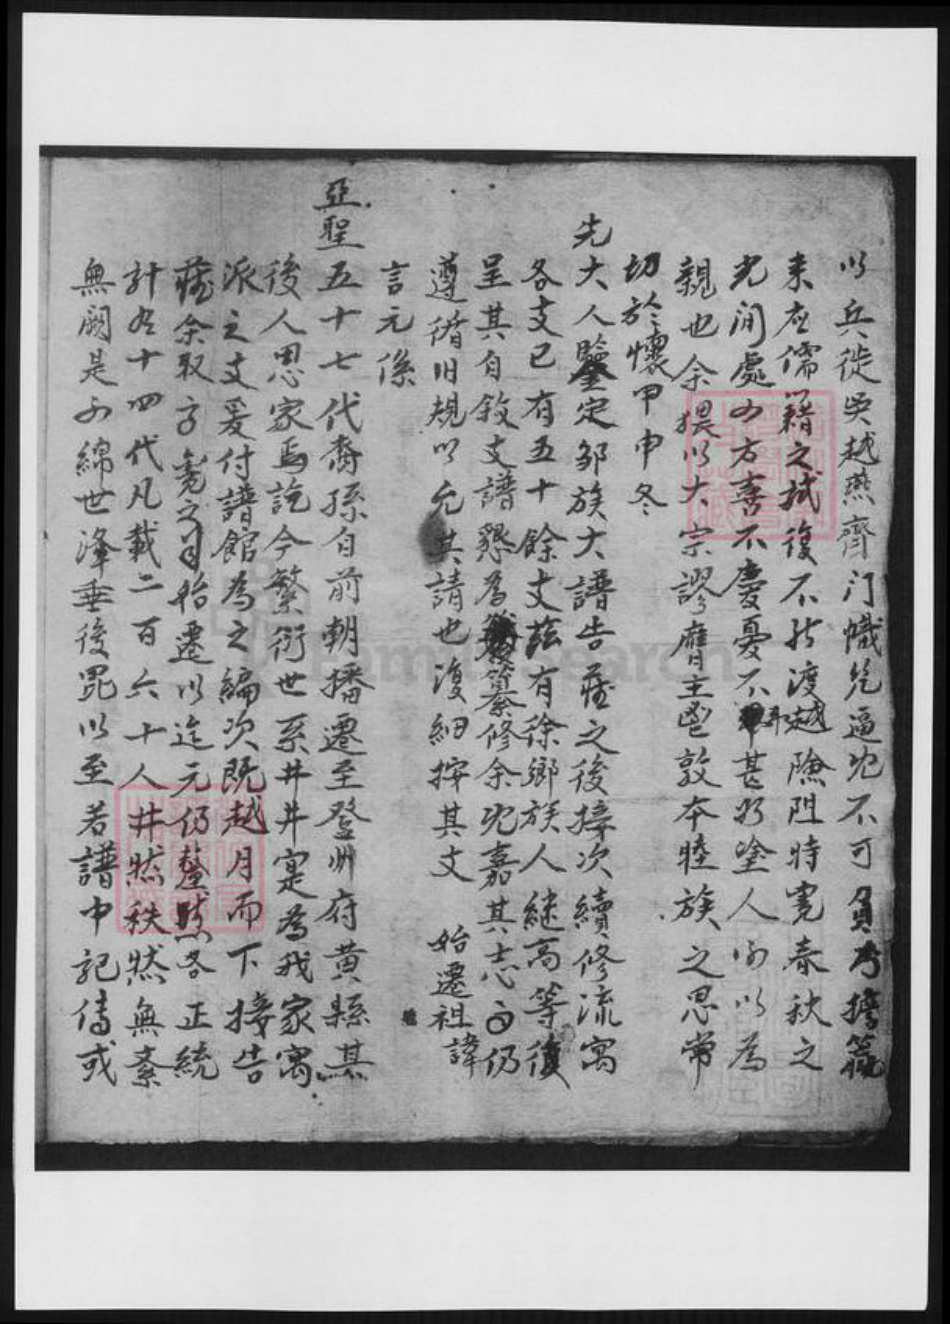 以兵徙吳越燕齊门幟児逼児不可負乃擔簦
来在儒籍之拭復不能渡越險阻時寔春秋之
光间處而方喜不慶憂不甚於塗人而以為
親也余猥以大宗謬膺主鬯敦本睦族之思常
切於懷甲申冬
先大人鑒定邹族大譜告蔵之後接次續修流寓
各支已有五十餘支茲有徐鄉族人継高等復
呈其自敘支譜懇為纂修余児嘉其志而仍
遵循旧規以允其請也復細按其支 始遷祖諱
言元係
亞聖五十七代裔孫自前朝播遷至登州府黄縣其
後人思家焉訖今繁衍世系井井寔為我家寓
派之支爰付譜館為之編次既越月而下接告
蔵余取而覽之自始遷以迄元仍釐然各正統
計九十四代凡載二百六十人井然秩然無紊
無闕是而綿世澤垂後昆以至若譜中記傳或